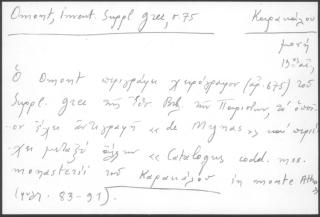 Omont, Invent. Suppl grec, σ. 75
Καρακάλου
μονή
19ος αἰ,
Ὁ Omont περιγράφει χειρόγραφον (ἀρ. 675) τοῦ
Suppl. grec τῆς Ἐθν Βιβ. τῆς Παρισίων, τὸ ὁποῖ-
ον ἔχει ἀντιγραφῆ «de Mynas» καὶ περιέ-
χει μεταξὺ ἄλλων «Catalogus codd. mss.
monasterii τοῦ Καρακάλου in monte Atho»
(φφ. 83-91).